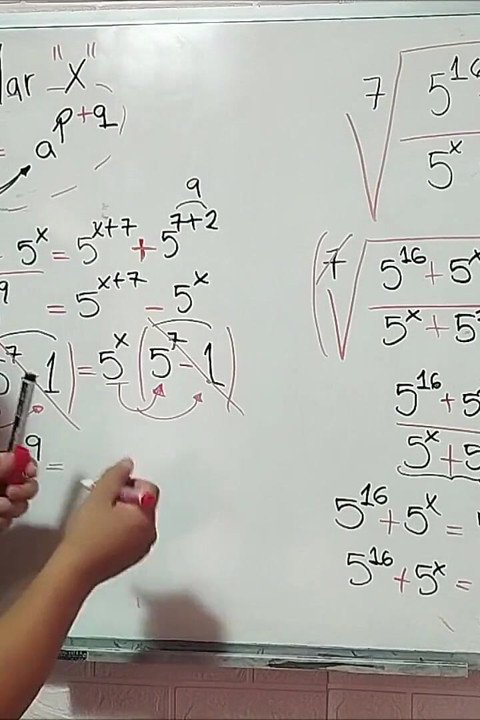 lar "X"
= a^{p+q}
5^x = 5^{x+7} + 5^{7+2} 9
9 = 5^{x+7} - 5^x
5^7 1) = 5^x (5^7 - 1)
9 =
7 √ 5^{16} / 5^x
(7 √ 5^{16} + 5^x / 5^x + 5
5^{16} + 5 / 5^x + 5
5^{16} + 5^x =
5^{16} + 5^x =